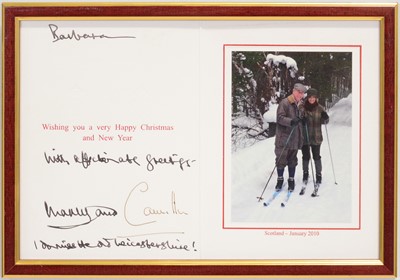 Barbara
Wishing you a very Happy Christmas
and New Year
with affectionate greetings
and Camilla
Leicestershire!
Scotland - January 2010